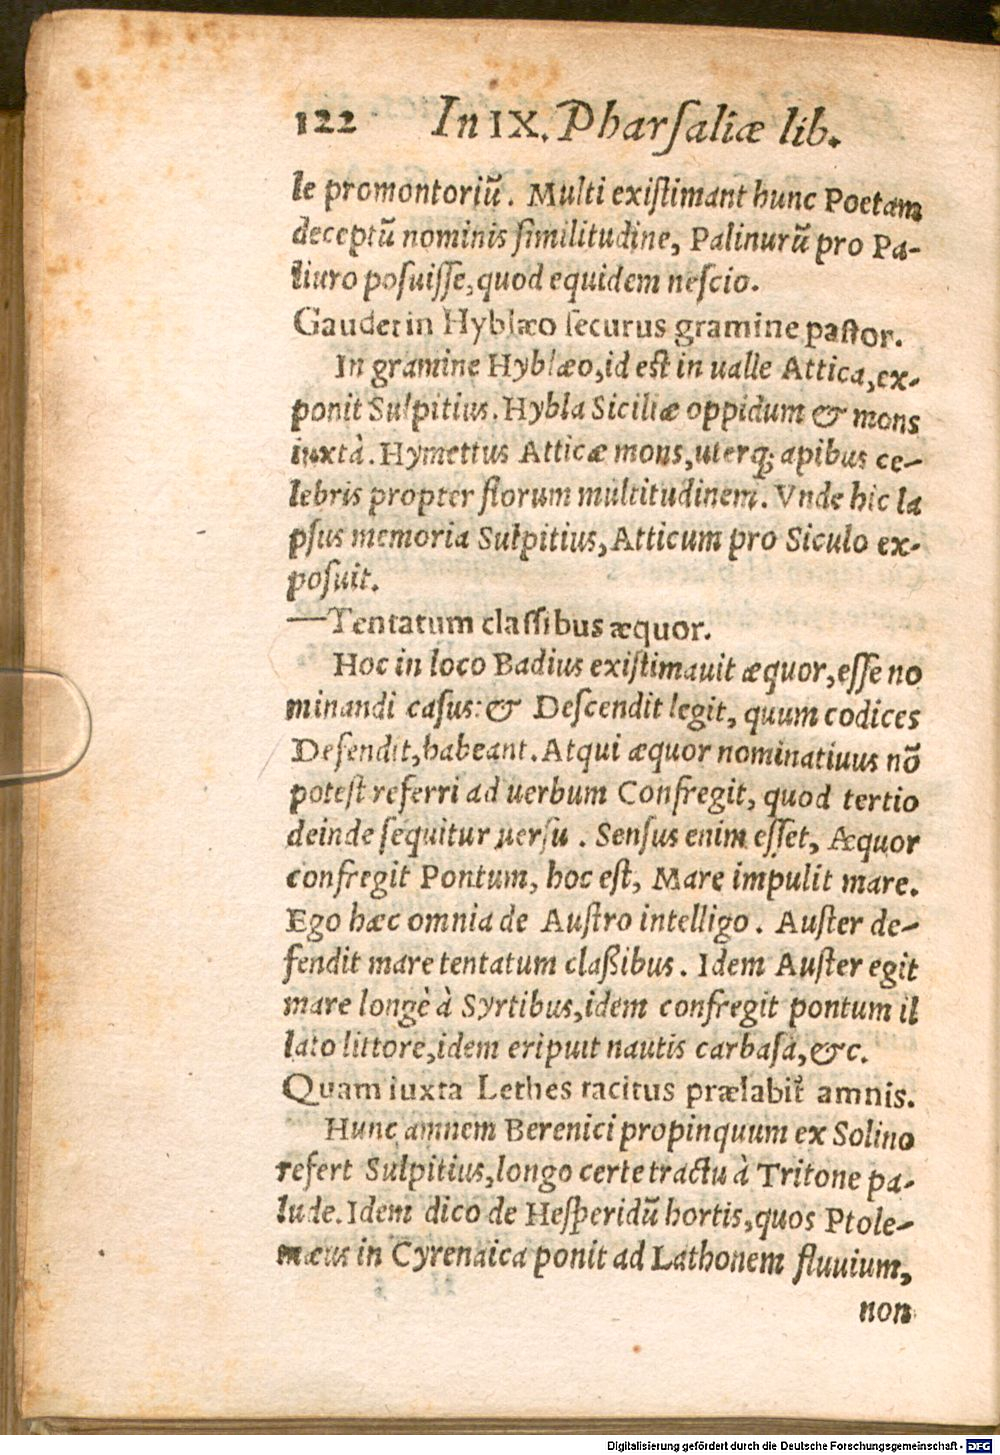 122 In IX. Pharſaliæ lib.
le promontoriũ. Multi exiſtimant hunc Poetam
deceptũ nominis ſimilitudine, Palinurũ pro Pa-
liuro poſuiſſe, quod equidem neſcio.
Gaudet in Hyblæo ſecurus gramine paſtor.
In gramine Hyblæo, id eſt in ualle Attica, ex-
ponit Sulpitius. Hybla Siciliæ oppidum & mons
iuxtà. Hymettus Atticæ mons, uterq; apibus ce-
lebris propter florum multitudinem. Vnde hic la
pſus memoria Sulpitius, Atticum pro Siculo ex-
poſuit.
—Tentatum claſſibus æquor.
Hoc in loco Badius exiſtimauit æquor, eſſe no
minandi caſus: & Deſcendit legit, quum codices
Defendit, habeant. Atqui æquor nominatiuus nõ
poteſt referri ad uerbum Confregit, quod tertio
deinde ſequitur uerſu. Senſus enim eſſet, Æquor
confregit Pontum, hoc eſt, Mare impulit mare.
Ego hæc omnia de Auſtro intelligo. Auſter de-
fendit mare tentatum claßibus. Idem Auſter egit
mare longè à Syrtibus, idem confregit pontum il
lato littore, idem eripuit nautis carbaſa, &c.
Quam iuxta Lethes tacitus prælabit̃ amnis.
Hunc amnem Berenici propinquum ex Solino
refert Sulpitius, longo certe tractu à Tritone pa-
lude. Idem dico de Heſperidũ hortis, quos Ptole-
mæus in Cyrenaica ponit ad Lathonem fluuium,
non
Digitalisierung gefördert durch die Deutsche Forschungsgemeinschaft - DFG